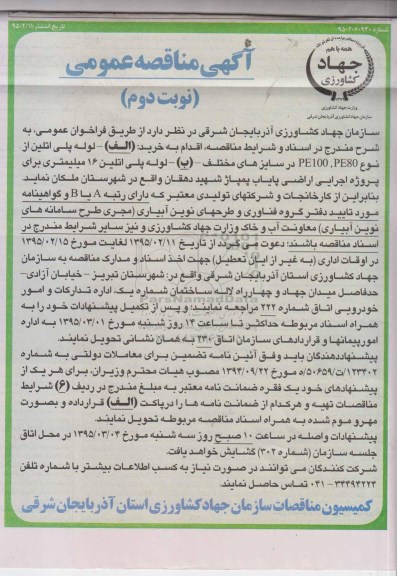 شماره ۹۵۰۲۰۶۰۹۳۰
تاریخ انتشار ۹۵/۲/۱۱
همه با هم
جهاد
کشاورزی
وزارت جهاد کشاورزی
سازمان جهاد کشاورزی آذربایجان شرقی
آگهی مناقصه عمومی
(نوبت دوم)
سازمان جهاد کشاورزی آذربایجان شرقی در نظر دارد از طریق فراخوان عمومی، به
شرح مندرج در اسناد و شرایط مناقصه اقدام به خرید: (الف) - لوله پلی اتلین از
نوع PE100 ,PE80 در سایز های مختلف - (ب) - لوله پلی اتلین ۱۶ میلیمتری برای
پروژه اجرایی اراضی پایاب پمپاژ شهید دهقان واقع در شهرستان ملکان نماید.
بنابراین از کارخانجات و شرکتهای تولیدی معتبر که دارای رتبه A یا B و گواهینامه
مورد تایید دفتر گروه فناوری و طرحهای نوین آبیاری (مجری طرح سامانه های
نوین آبیاری) معاونت آب و خاک وزارت جهاد کشاورزی و نیز سایر شرایط مندرج در
اسناد مناقصه باشند؛ دعوت می گردد از تاریخ ۱۳۹۵/۰۲/۱۱ لغایت مورخ ۱۳۹۵/۰۲/۱۵
در اوقات اداری (به غیر از ایام تعطیل) جهت اخذ اسناد و مدارک مناقصه به سازمان
جهاد کشاورزی استان آذربایجان شرقی واقع در: شهرستان تبریز - خیابان آزادی -
حدفاصل میدان جهاد و چهارراه لاله ساختمان شماره یک، اداره تدارکات و امور
خودرویی اتاق شماره ۲۲۲ مراجعه نمایند؛ و پس از تکمیل پیشنهادات خود را به
همراه اسناد مربوطه حداکثر تا ساعت ۱۴ روز شنبه مورخ ۱۳۹۵/۰۳/۰۱ به اداره
امور پیمانها و قراردادهای سازمان اتاق ۲۳۰ به همان نشانی تحویل نمایند.
پیشنهاددهندگان باید وفق آئین نامه تضمین برای معاملات دولتی به شماره
۱۲۳۴۰۲/ت۵۰۶۵۹/ه مورخ ۱۳۹۴/۰۹/۲۲ مصوب هیات محترم وزیران، برای هر یک از
پیشنهادهای خود یک فقره ضمانت نامه معتبر به مبلغ مندرج در ردیف (۶) شرایط
مناقصات تهیه و هرکدام از ضمانت نامه ها را درپاکت (الف) قرارداده و بصورت
مهر و موم شده به همراه اسناد مناقصه مربوطه تحویل نمایند.
پیشنهادات واصله در ساعت ۱۰ صبح روز سه شنبه مورخ ۱۳۹۵/۰۳/۰۴ در محل اتاق
جلسه سازمان (شماره ۳۰۲) گشایش خواهد یافت.
شرکت کنندگان می توانند در صورت نیاز به کسب اطلاعات بیشتر با شماره تلفن
۳۴۴۹۴۲۲۳ - ۰۴۱ تماس حاصل نمایند.
کمیسیون مناقصات سازمان جهاد کشاورزی استان آذربایجان شرقی